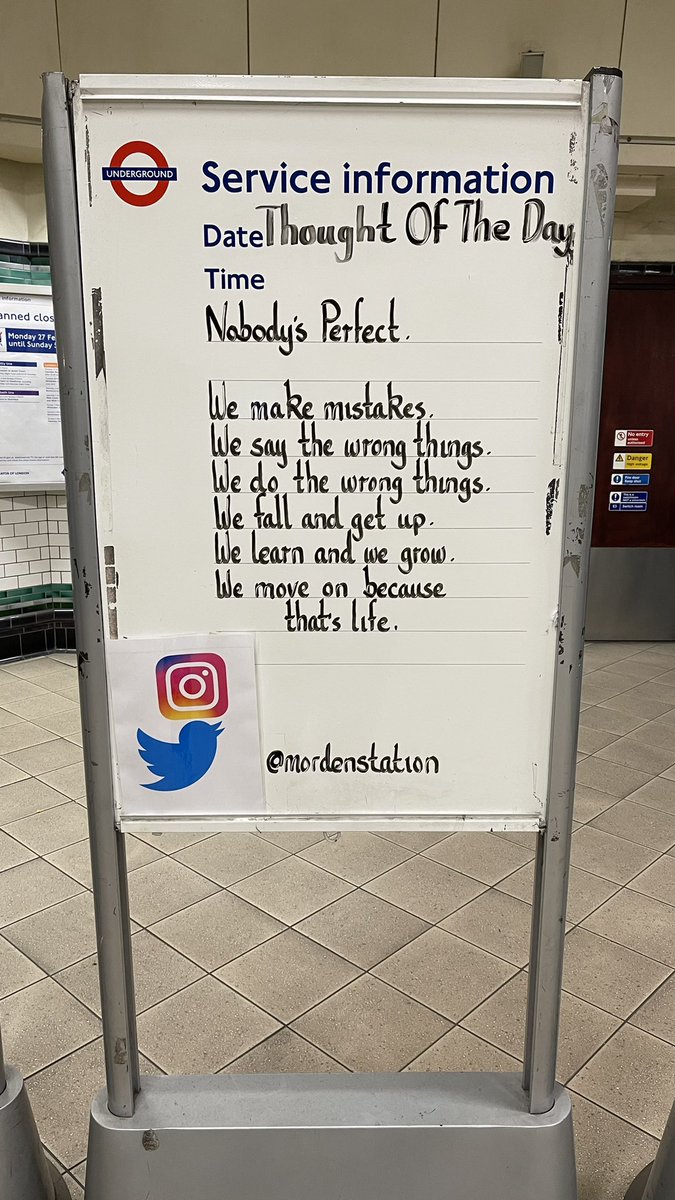 UNDERGROUND
Service information
Date Thought Of The Day
Time
Nobody's Perfect.
We make mistakes.
We say the wrong things.
We do the wrong things.
We fall and get up.
We learn and we grow.
We move on because
that's life.
@mordenstation
information
anned clos
Monday 27 Fe
until Sunday
MAYOR OF LONDON
No entry
Danger
High voltage
Fire door
Keep shut
Switch room